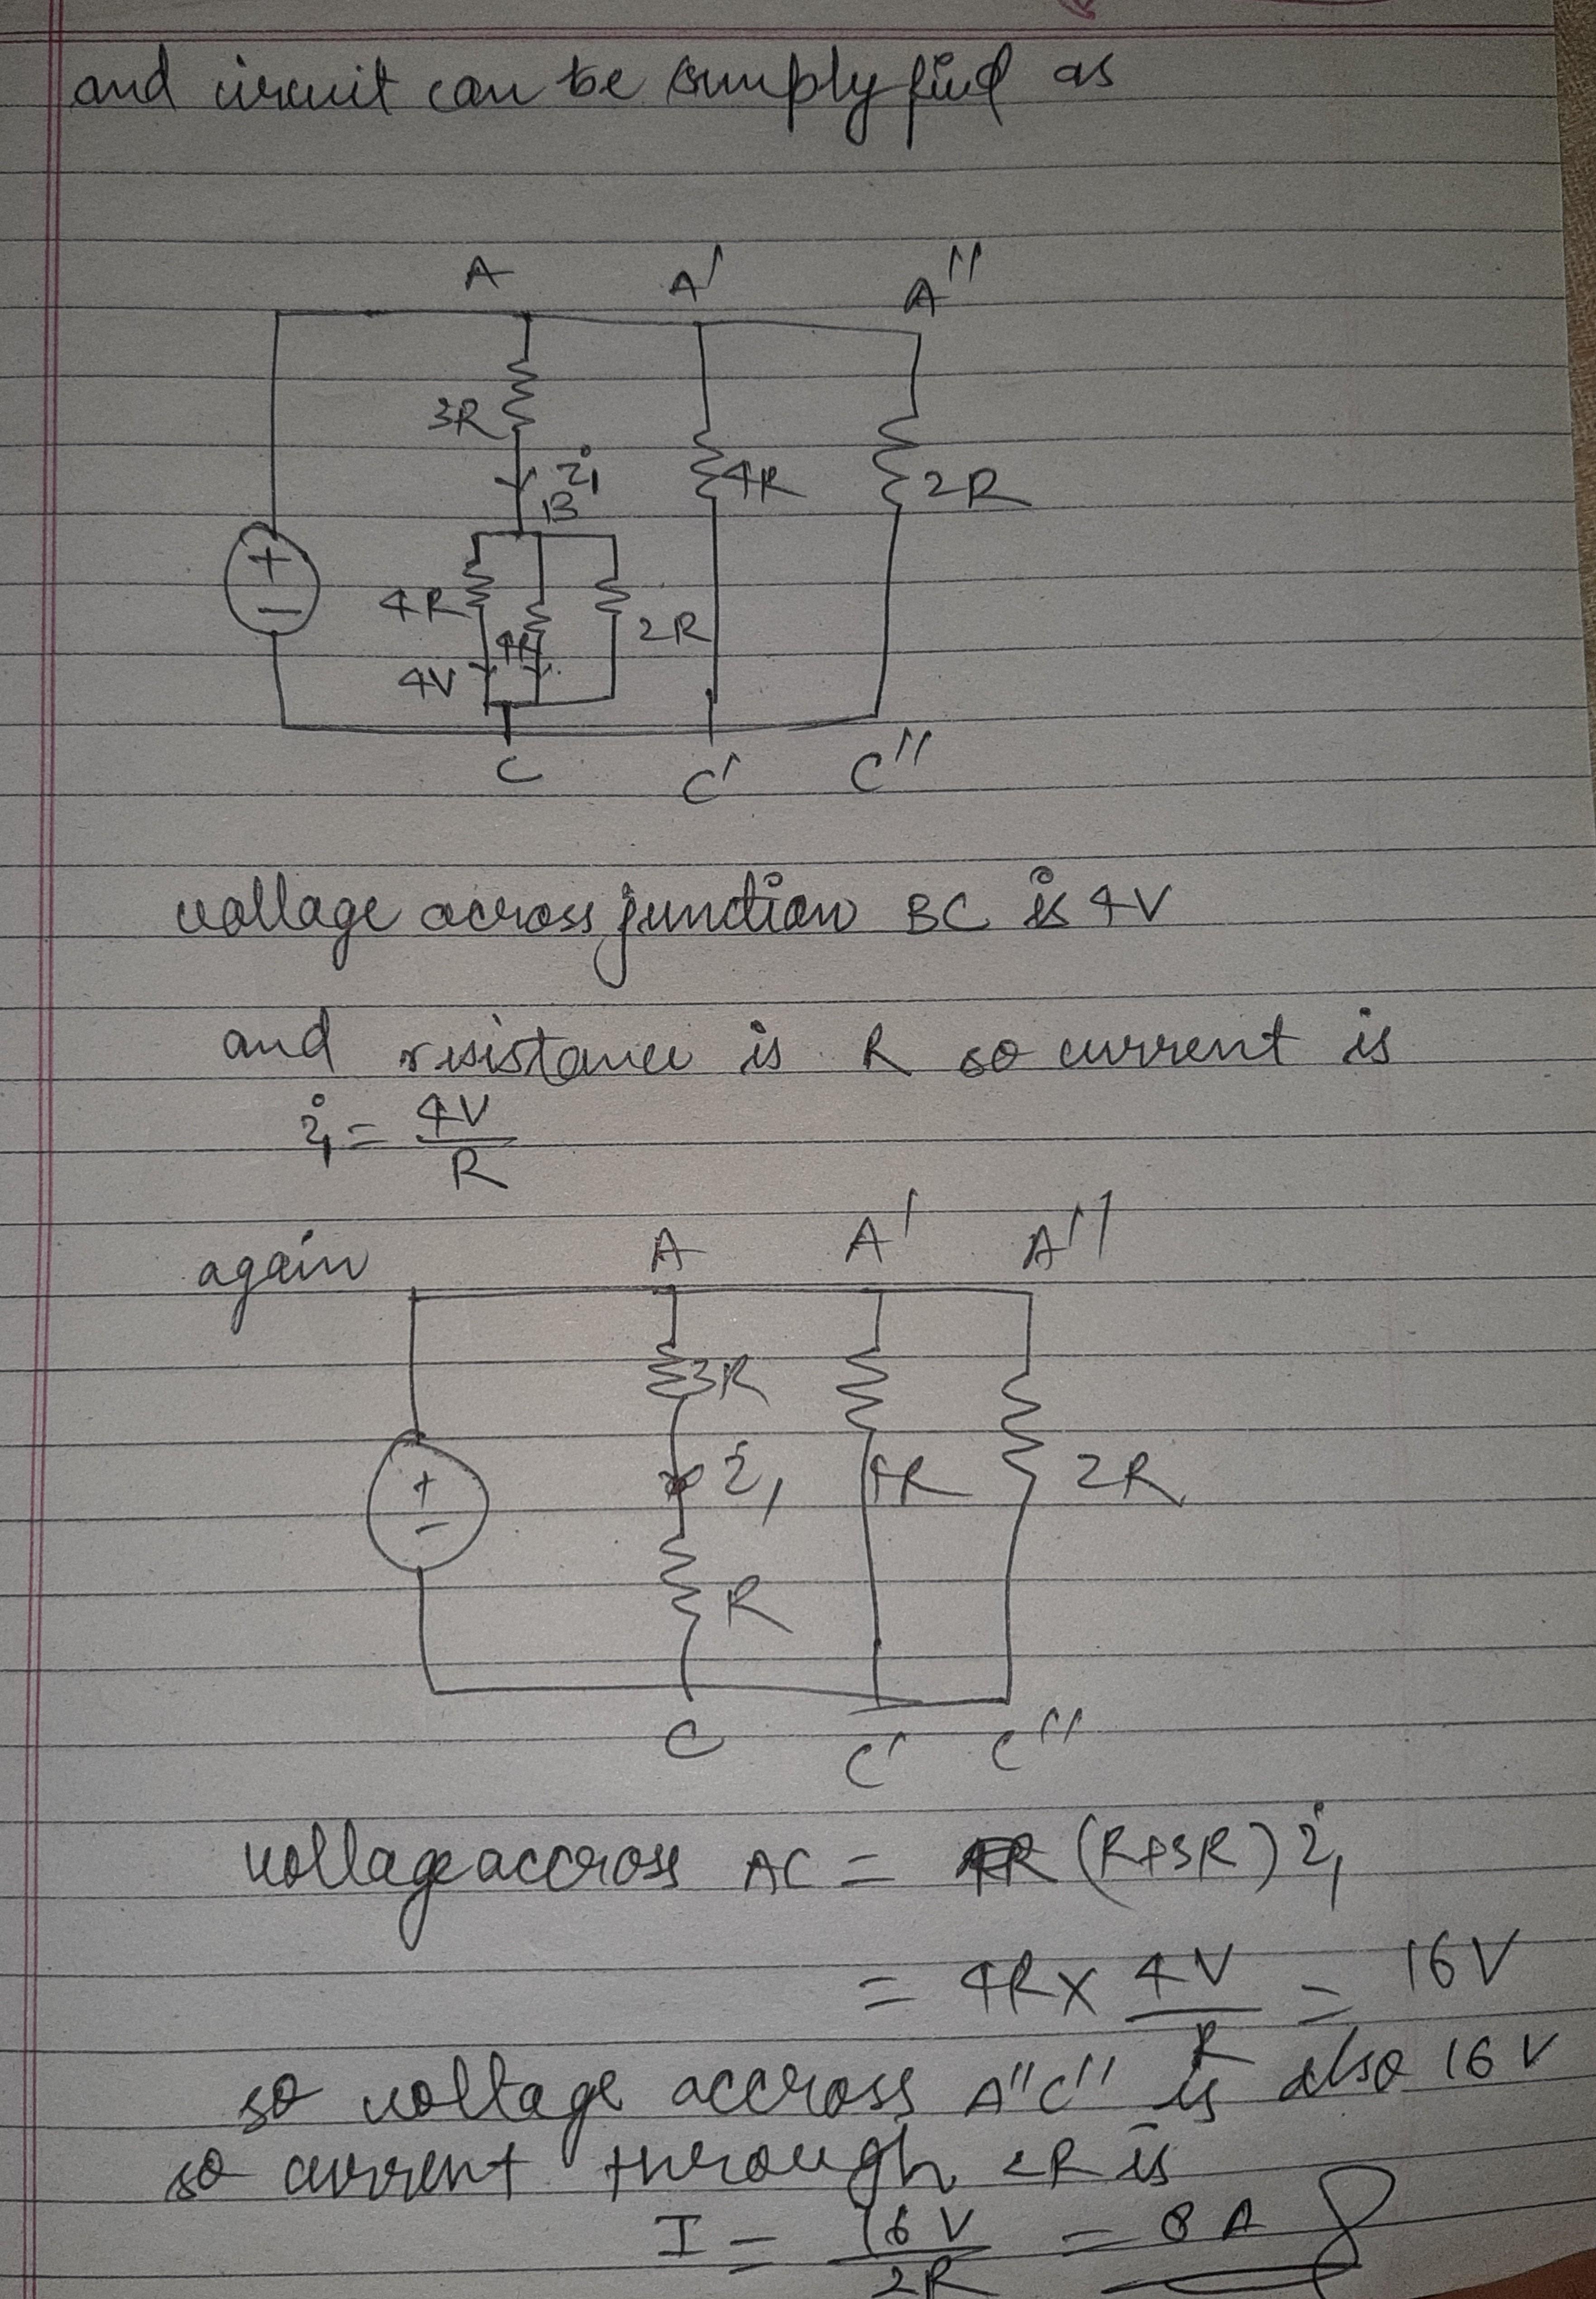 and circuit can be simplyfied as
A A' A''
3R
i₁
B
4R 2R
+
−
4R 4R 2R
4V
C C' C''
voltage across junction BC is 4V
and resistance is R so current is
i₁ = 4V/R
again A A' A''
3R
+
−
i₁ 4R 2R
R
C C' C''
voltage accross AC = (R+3R) i₁
= 4R × 4V/R = 16V
so voltage accross A''C'' is also 16V
so current through 2R is
I = 16V/2R = 8A